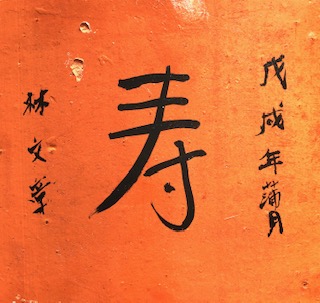 戊戌年蒲月
寿
林文章